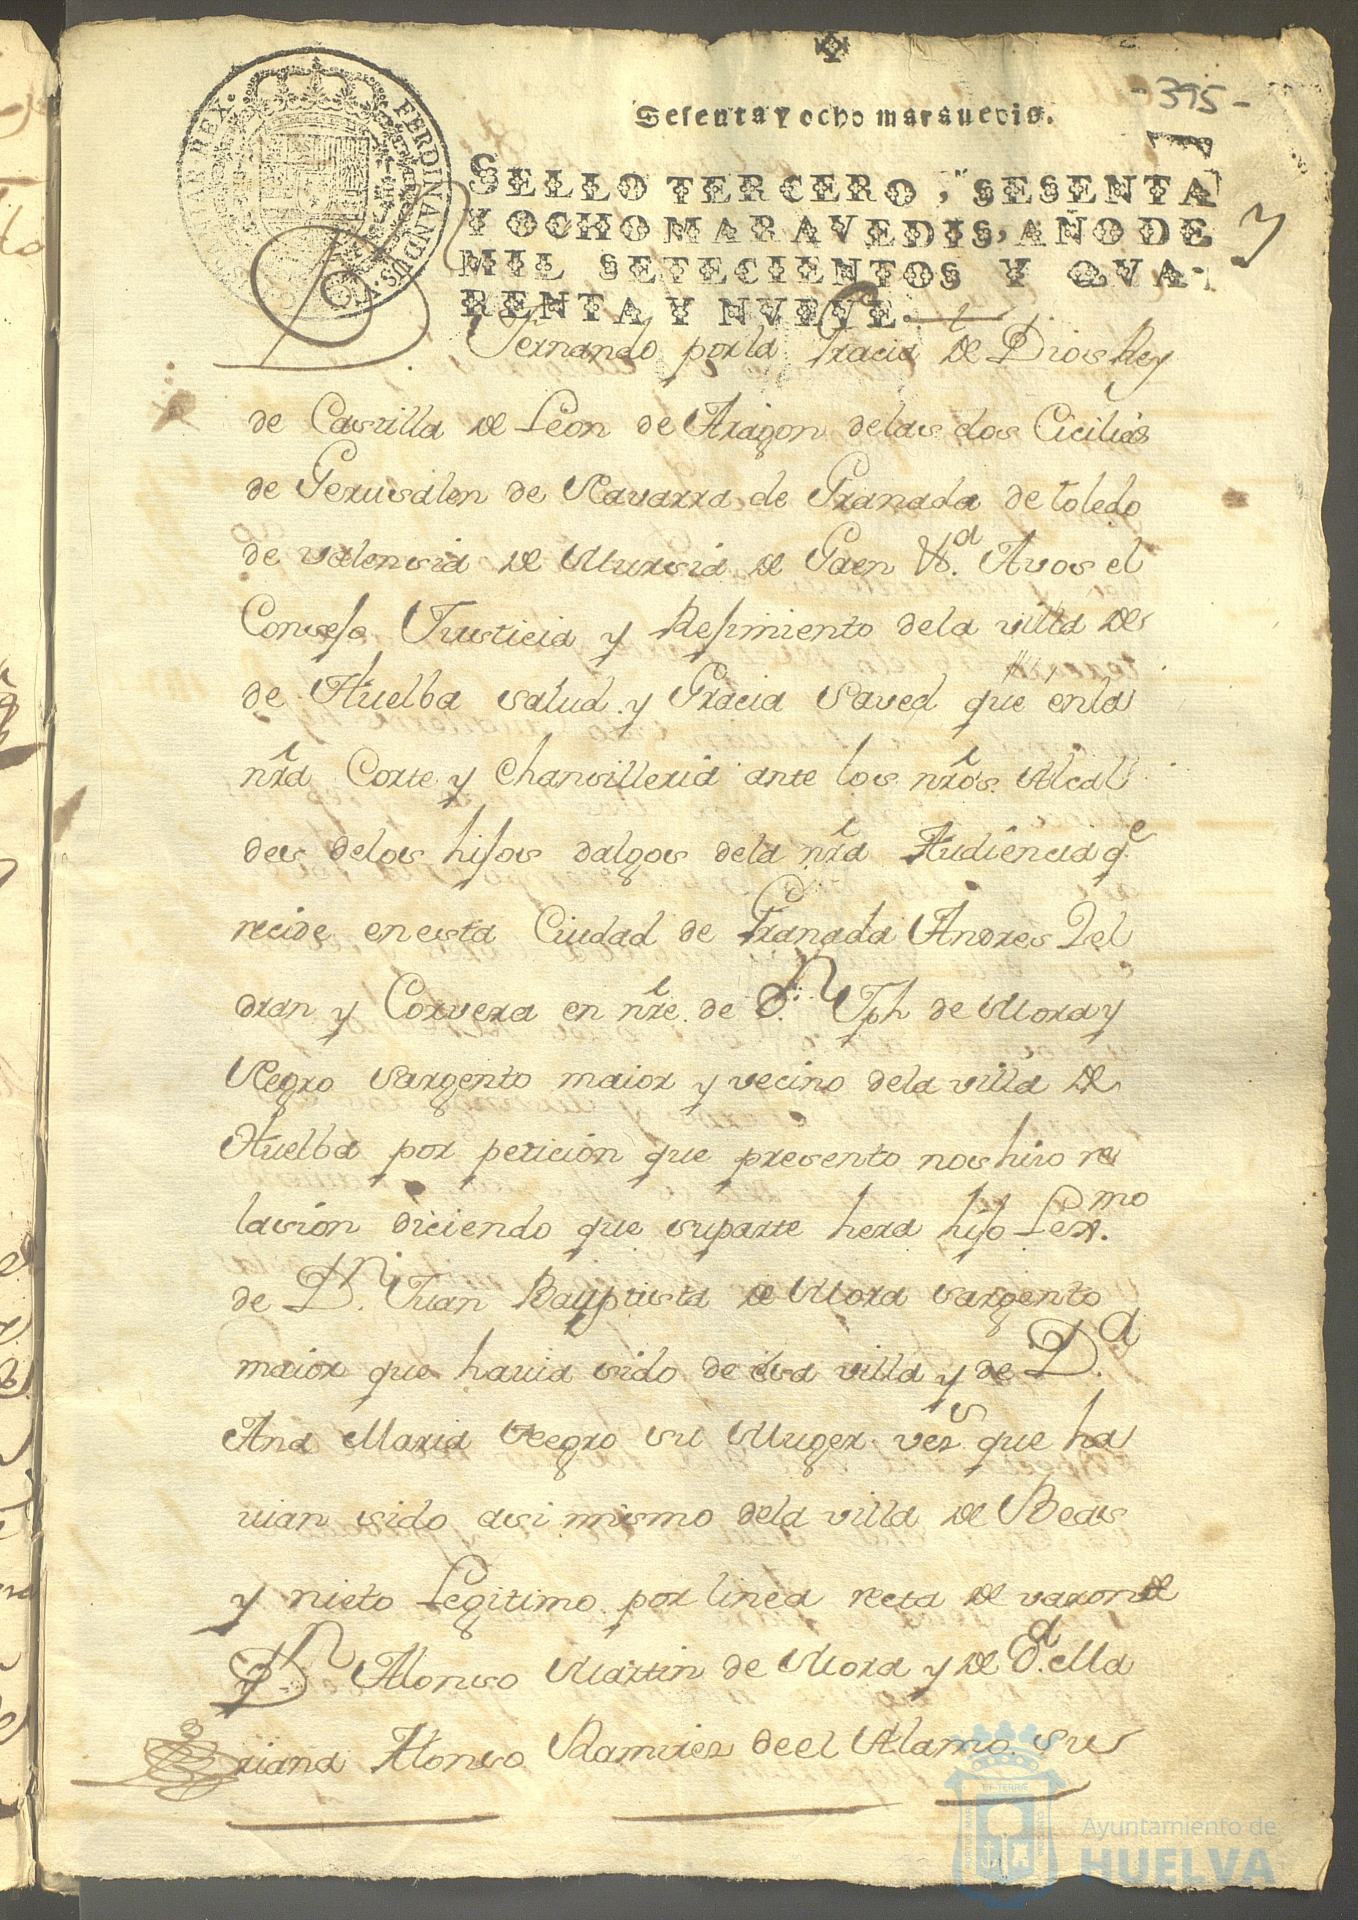 -395-
Sesenta y ocho maravedis.
SELLO TERCERO, SESENTA
Y OCHO MARAVEDIS, AÑO DE
MIL SETECIENTOS Y QVA-
RENTA Y NVEVE.
FERDINANDUS. VI.
HISPANIAR REX.
Dn Fernando por la Gracia de Dios Rey
de Castilla de Leon de Aragon delas dos Cicilias
de Gerusalen de Navarra de Granada de toledo
de valensia de Mursia de Gaen &a. Avos el
Consejo Justicia y Resimiento dela villa de
de Huelba salud y Gracia Saved que enla
nra Corte y Chansilleria ante los nros Alcal
des delos hijos dalgos dela nra Audiencia qe
recide enesta Ciudad de Granada Andres Del
dran y Corvera en nre. de Dn Jph de Mora y
Negro Sargento maior y vecino dela villa de
Huelba por peticion que presento nos hiso re
lasion diciendo que suparte hera hijo Lexmo.
de Dn. Juan Bauptista de Mora Sargento
maior que hauia sido de esa villa y de Da.
Ana Maria Negro su Muger vezs que ha
uian sido asi mismo dela villa de Beas
y nieto Legitimo por linea recta de varon de
Dn Alonso Martin de Mora y de Da. Ma
riana Alonso Ramires deel Alamo sus
Ayuntamiento de
HUELVA